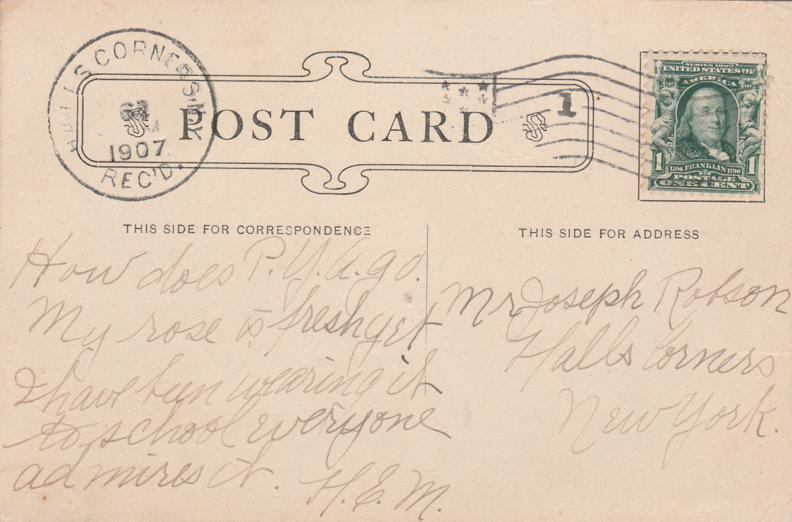 HALLS CORNERS N.Y.
1907
REC'D.
POST CARD
1
SERIES 1902
UNITED STATES OF
AMERICA
1706 FRANKLIN 1790
1 POSTAGE 1
ONE CENT
THIS SIDE FOR CORRESPONDENCE
How does P.Y.A. go.
My rose is fresh yet
I have been wearing it
to school everyone
admires it. H.E.M.
THIS SIDE FOR ADDRESS
Mr Joseph Robson
Halls Corners
New York.